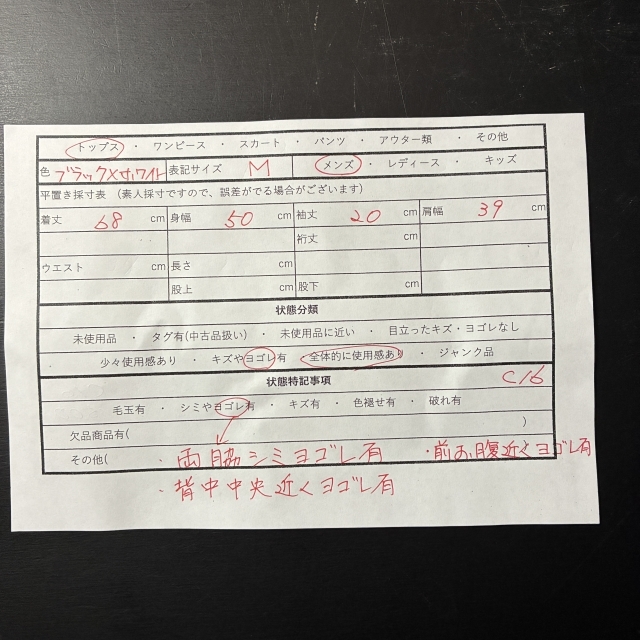 トップス ・ ワンピース ・ スカート ・ パンツ ・ アウター類 ・ その他
色 ブラック×ホワイト 表記サイズ M メンズ ・ レディース ・ キッズ
平置き採寸表 (素人採寸ですので、誤差がでる場合がございます)
着丈 68 cm 身幅 50 cm 袖丈 20 cm 肩幅 39 cm
裄丈 cm
ウエスト cm 長さ cm
股上 cm 股下 cm
状態分類
未使用品 ・ タグ有(中古品扱い) ・ 未使用品に近い ・ 目立ったキズ・ヨゴレなし
少々使用感あり ・ キズやヨゴレ有 ・ 全体的に使用感あり ・ ジャンク品
状態特記事項 C16
毛玉有 ・ シミやヨゴレ有 ・ キズ有 ・ 色褪せ有 ・ 破れ有
欠品商品有( )
その他( ・両脇シミヨゴレ有 ・前お腹近くヨゴレ有
・背中中央近くヨゴレ有